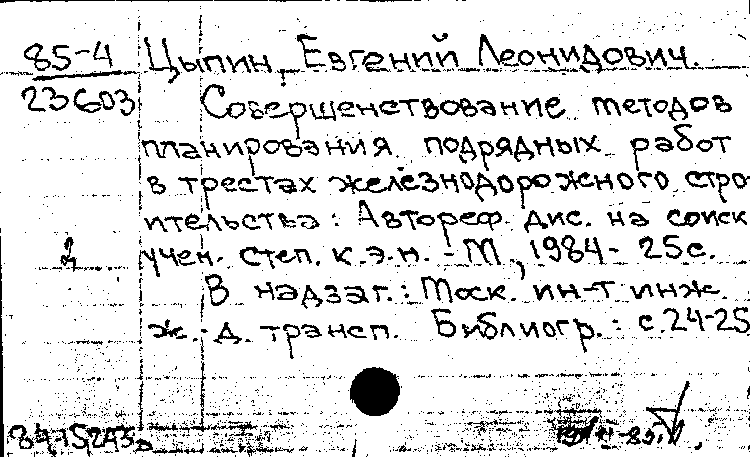 85-4 Цыпин, Евгений Леонидович.
23603 Совершенствование методов
планирования подрядных работ
в трестах железнодорожного стро-
ительства: Автореф. дис. на соиск
2 учен. степ. к.э.н. - М, 1984 - 25с.
В надзаг.: Моск. ин-т инж.
ж.-д. трансп. Библиогр.: с.24-25